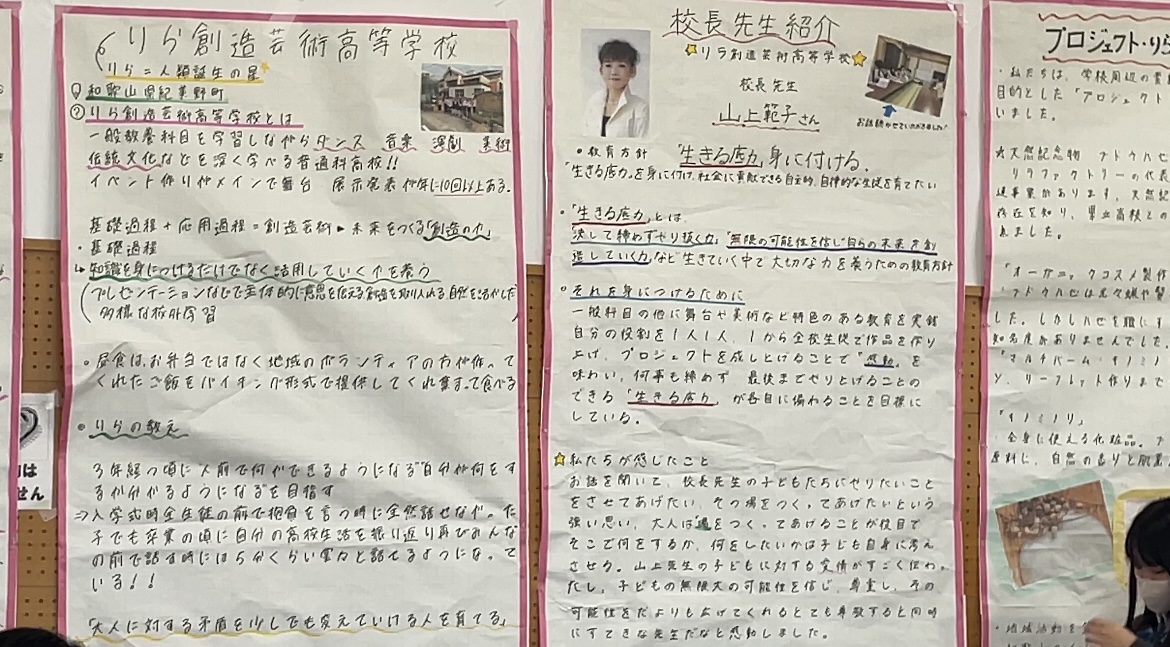 りら創造芸術高等学校
りら=人類誕生の星
和歌山県紀美野町
りら創造芸術高等学校とは
一般教養科目を学習しながらダンス 音楽 演劇 美術
伝統文化などを深く学べる普通科高校!!
イベント作りがメインで舞台 展示発表が年に10回以上ある。
基礎過程+応用過程=創造芸術▶未来をつくる「創造の力」
・基礎過程
↳知識を身につけるだけでなく活用していく力を養う
プレゼンテーションなどで主体的に意思を伝える
多様な校外学習
。昼食はお弁当ではなく地域のボランティアの方が作って
くれたご飯をバイキング形式で提供してくれ
・りらの教え
3年経つ頃に人前で何かできるようになる"自分が何をす
るか分かるようになる"を目指す
⇒入学式時全生徒の前で抱負を言う時に全然話せなかった
子でも卒業の頃に自分の高校生活を振り返り再びみんな
の前で話す時には5分くらい堂々と話せるようになって
いる!!
「大人に対する矛盾を少しでも変えていける人を育てる」
校長先生紹介
☆リラ創造芸術高等学校☆
校長先生
山上範子さん
お話聞かせていただきました!
・教育方針 「生きる底力」身に付ける.
「生きる底力」を身に付け、社会に貢献できる自主的、自律的な生徒を育てたい
・「生きる底力」とは、
決して締めずやり抜く力」「無限の可能性を信じ自らの未来を創
造していく力」など生きていく中で大切な力を養うための教育方針
。それを身につけるために
一般科目の他に舞台や美術など特色のある教育を実践
自分の役割を1人1人、1から全校生徒で作品を作り
上げ、プロジェクトを成しとげることで「感動」を
味わい、何事も締めず 最後までやりとげることの
できる「生きる底力」が各自に備わることを目標に
している。
☆私たちが感じたこと
お話を聞いて、校長先生の子どもたちにやりたいこと
をさせてあげたい、その場をつくってあげたいという
強い思い、大人は道をつくってあげることが役目で
そこで何をするか、何をしたいかは子ども自身に考え
させる。山上先生の子どもに対する愛情がすごく伝わっ
た。子どもの無限大の可能性を信じ、尊重し、その
可能性をだれよりも広げてくれるとても尊敬すると同時
にすてきな先生だなと感動しました。
プロジェクト・りら
・私たちは、学校周辺の
目的とした「プロジェクト
いました。
天然記念物
リラファクトリーの代表
存在を知り、県立高校との
「オーガニックコスメ製作
した。しかし
知名度がありませんでした。
リーフレット作りまで
「キノミノリ」
全身に使える化粧品。
原料に、自然の香りと肌
・地域活動を